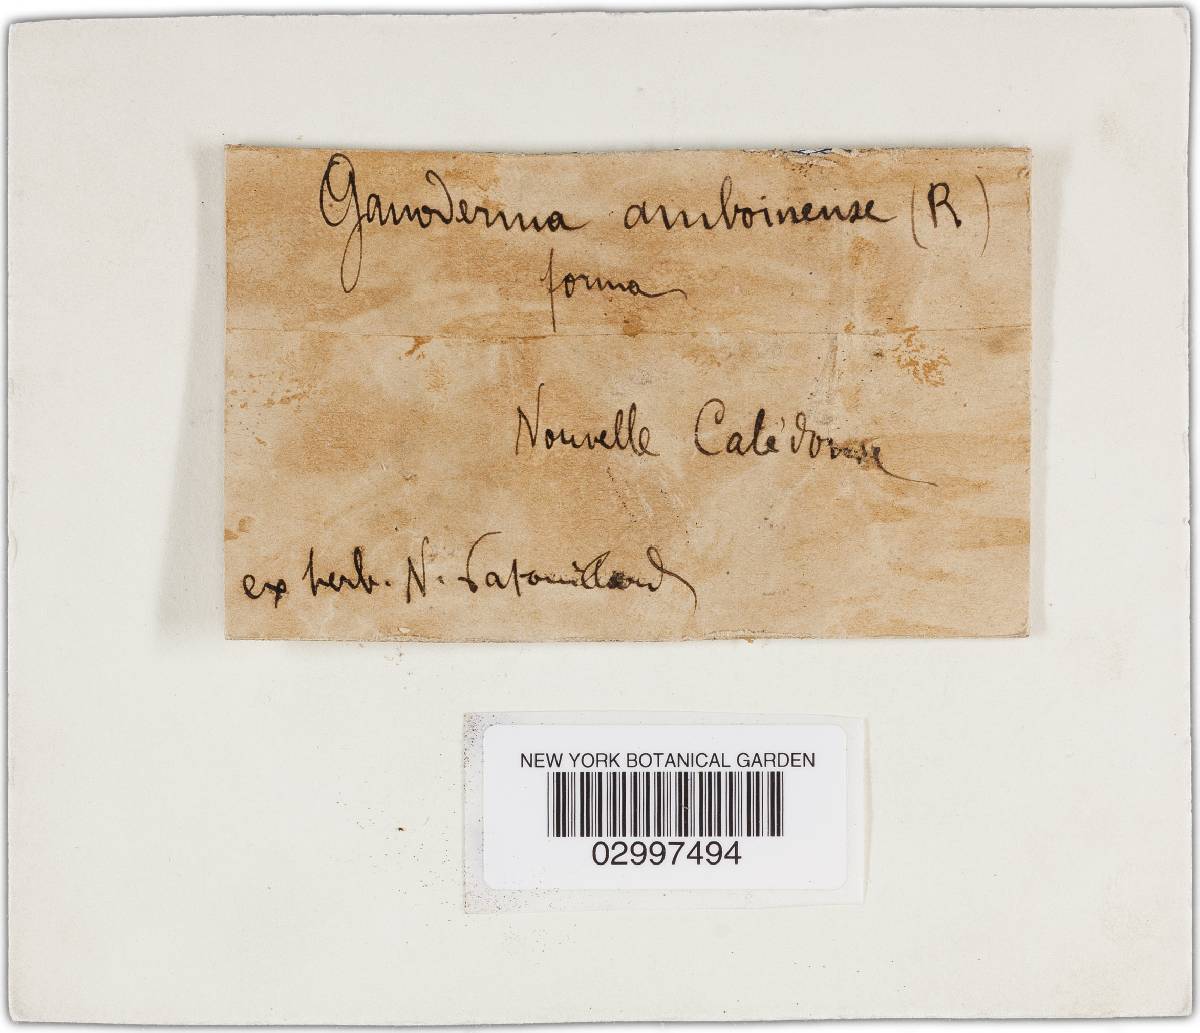 Ganoderma amboinense (R)
forma
Nouvelle Calédonie
ex herb. N. Patouillard
NEW YORK BOTANICAL GARDEN
02997494